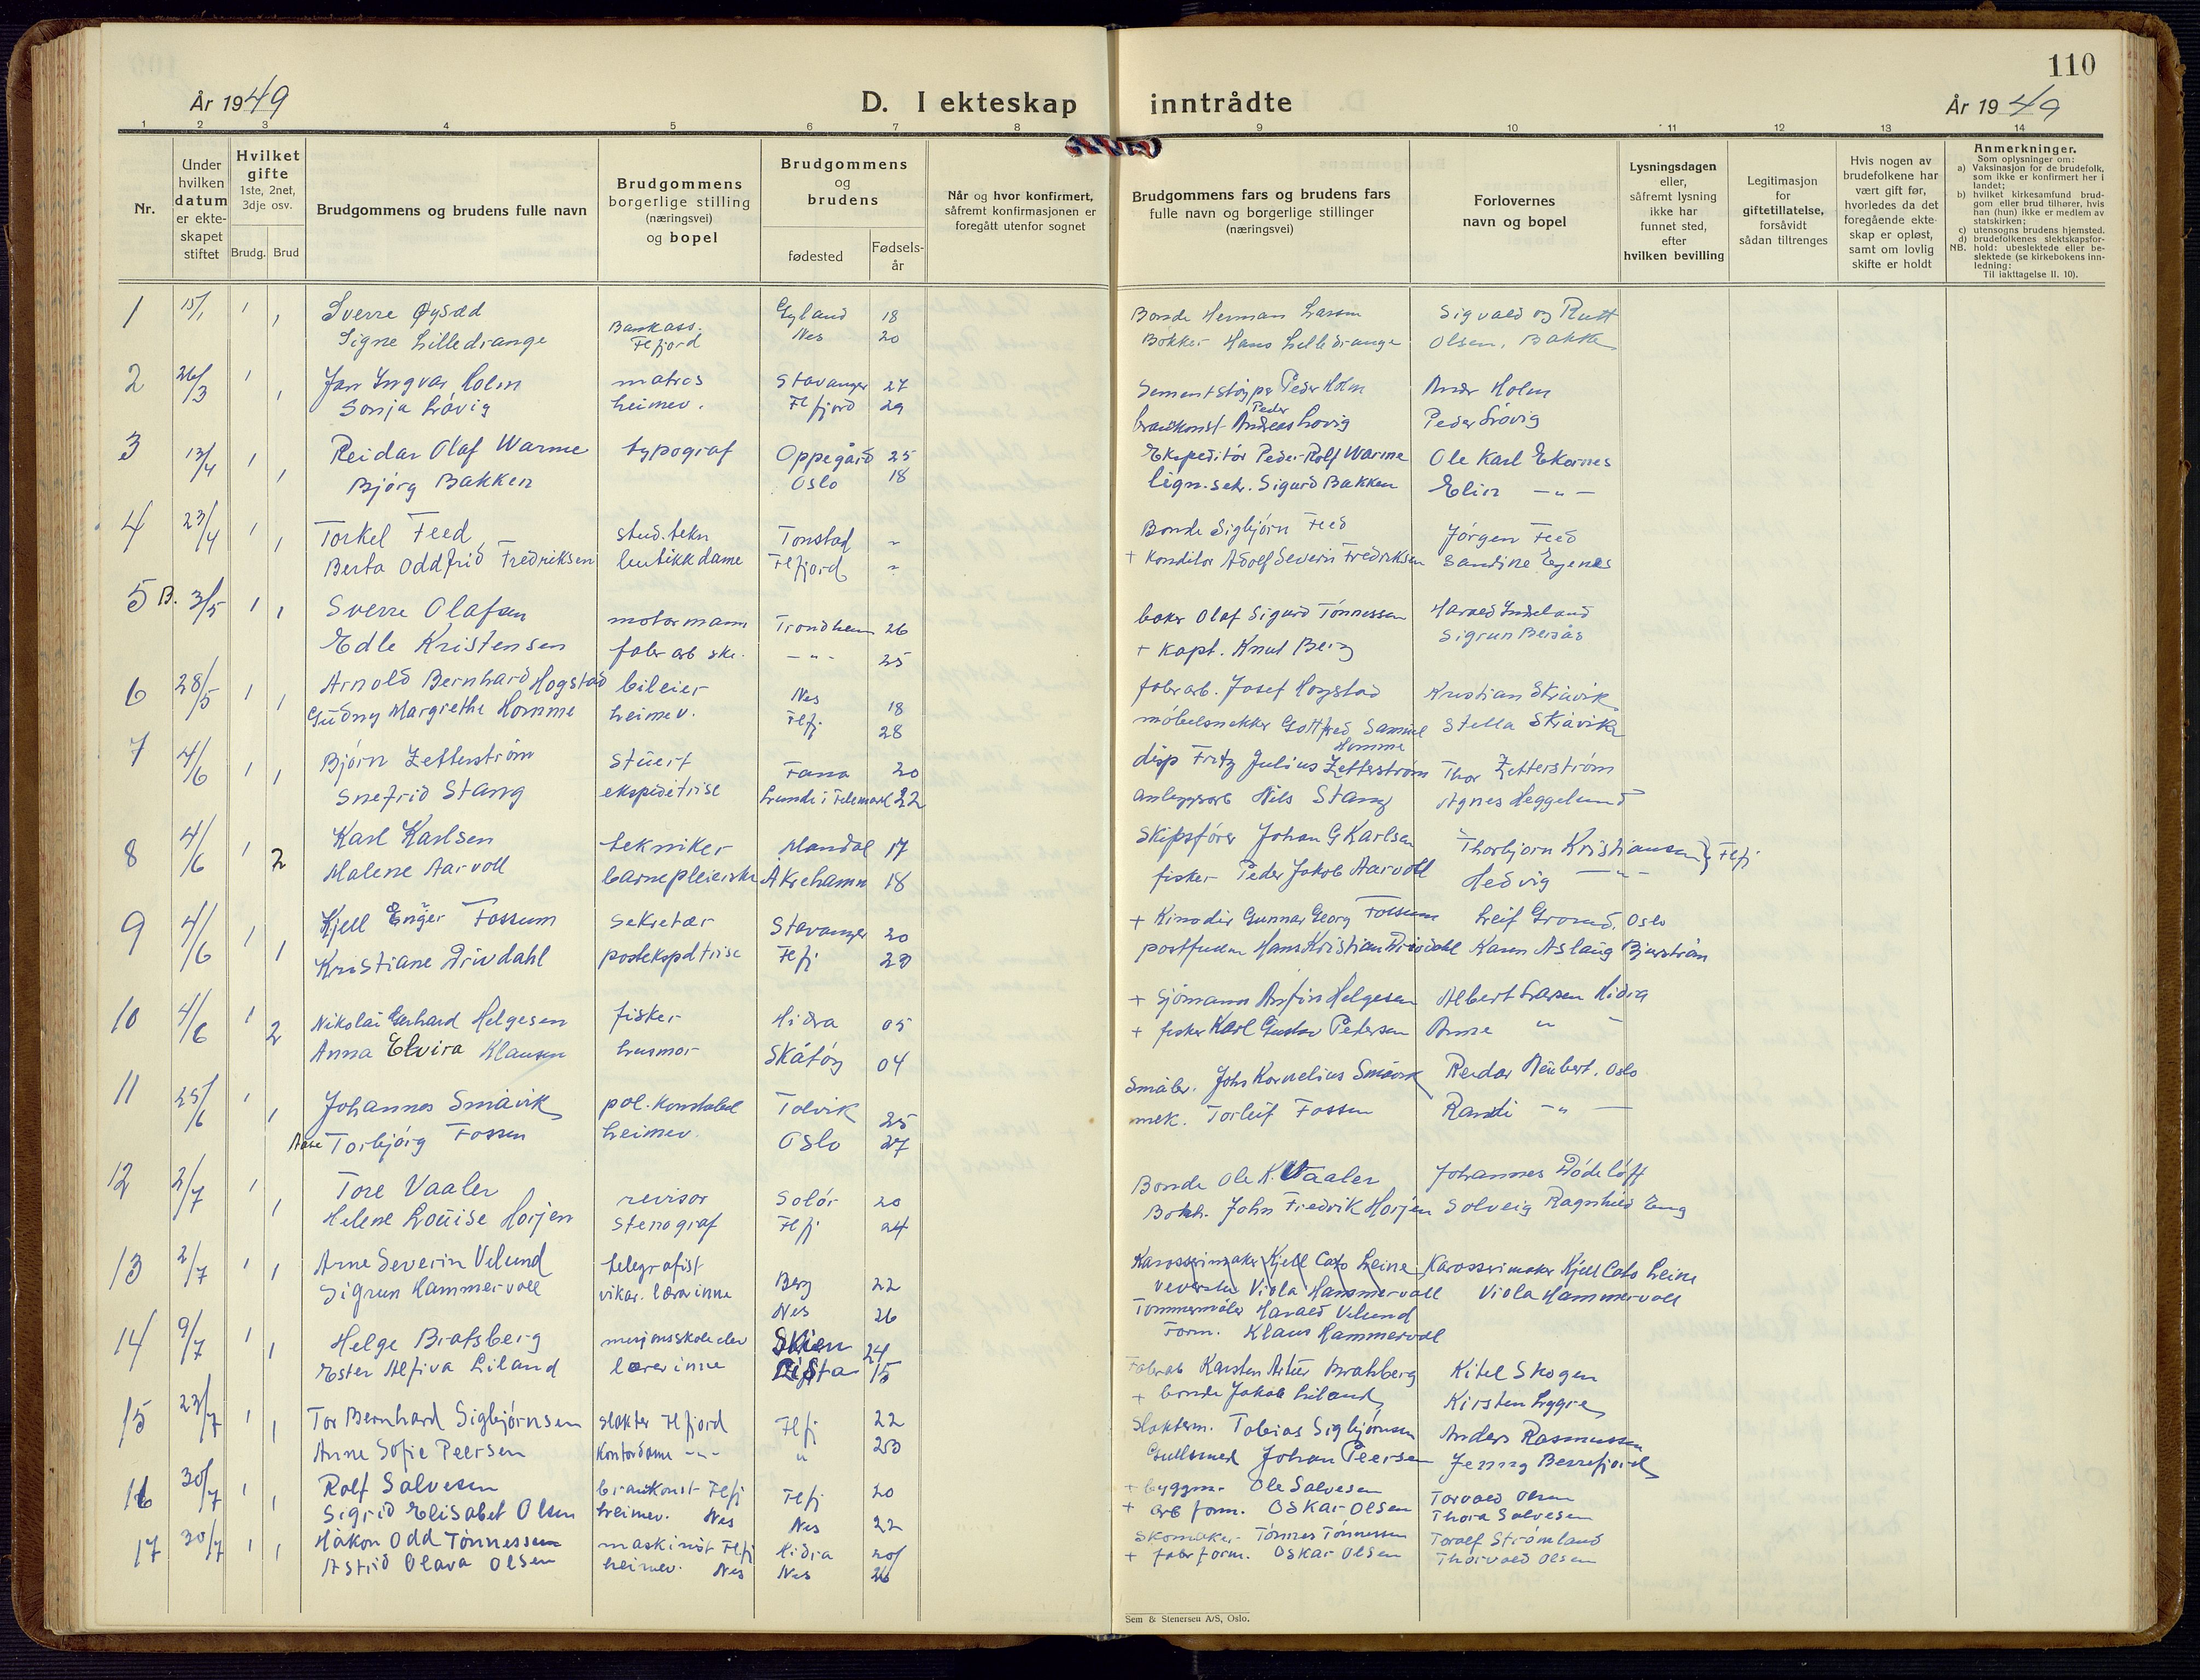 110
År 1949
D. I ekteskap inntrådte
År 1949
1 2 3 4 5 6 7 8 9 10 11 12 13 14
Nr.
Under hvilken datum er ekte-skapet stiftet
Hvilket gifte 1ste, 2net, 3dje osv.
Brudg. Brud
Brudgommens og brudens fulle navn
Brudgommens borgerlige stilling (næringsvei) og bopel
Brudgommens og brudens
fødested
Fødsels-år
Når og hvor konfirmert, såfremt konfirmasjonen er foregått utenfor sognet
Brudgommens fars og brudens fars fulle navn og borgerlige stillinger (næringsvei)
Forlovernes navn og bopel
Lysningsdagen eller, såfremt lysning ikke har funnet sted, efter hvilken bevilling
Legitimasjon for giftetillatelse, forsåvidt sådan tiltrenges
Hvis nogen av brudefolkene har vært gift før, hvorledes da det foregående ekte-skap er opløst, samt om lovlig skifte er holdt
Anmerkninger.
Som oplysninger om:
a) Vaksinasjon for de brudefolk, som ikke er konfirmert her i landet;
b) hvilket kirkesamfund brud-gom eller brud tilhører, hvis han (hun) ikke er medlem av statskirken;
c) utensogns brudens hjemsted.
d) brudefolkenes slektskapsfor-hold: ubeslektede eller be-slektede (se kirkebokens inn-ledning:
NB. Til iakttagelse II. 10).
1 15/1 1 Sverre Øysæd Bankass. Gyland 18 Bonde Herman Larsen Sigvald og Rutt
1 Signe Lilledrange Flfjord Nes 20 Bøkker Hans Lilledrange Olsen, Bakke
2 26/3 1 Jan Yngvar Holm matros Stavanger 27 Sementstøper Peder Holm Holm
1 Sonja Løvig heimev. Flfjord 29 brankonst Peder Andreas Lovig Peder Løvig
3 13/4 1 Reidar Olaf Warme typograf Oppegård 25 Ekspeditør Peder Rolf Warme Ole Karl Ekornes
1 Bjørg Bakken Oslo 18 lign.sekr. Sigurd Bakken Elin —"—
4 23/4 1 Torkel Feed stud. tekn Tonstad " Bonde Sigbjørn Feed Jørgen Feed
1 Berta Oddfrid Fredriksen butikkdame Flfjord " + Konditor Adolf Severin Fredriksen Sandine Egenes
5 B. 3/5 1 1 Sverre Olafsen motormann Trondheim 26 baker Olaf Sigurd Tønnessen Harald Indseland
Edle Kristensen fabr arb ske. —"— 25 + Kapt. Knut Berg Sigrun
6 28/5 1 1 Arnold Bernhard Hogstad bileier Nes 18 fabr arb. Josef Hogstad Kristian Skråvik
Gudny Margrethe Homme heimev. Flfj 28 møbelsnekker Gottfred Samuel Homme Stella Skråvik
7 4/6 1 1 Bjørn Zetterstrøm Stuert Fana 20 disp Fritz Julius Zetterstrøm Thor Zetterstrøm
Snefrid Stang ekspeditrise Lunde i Telemark 22 anleggsarb Nils Stang Agnes Heggelund
8 4/6 1 Karl Karlsen tekniker Mandal 17 Skipsfører Johan G Karlsen Thorbjørn Kristiansen } Flfj
2 Malene Aarvoll barnepleierske Åkrehamn 18 fisker Peder Jakob Aarvoll Hedvig —"—
9 4/6 1 Kjell Enger Fossum Sekretær Stavanger 20 + Kinodir Gunnar Georg Fossum Leif Oslo
1 Kristiane Drivdahl postekspdtrise Flfj Hans Kristian Drivdahl Karen Aslaug Bjurstrøm
10 4/6 1 Nikolai Gerhard Helgesen fisker Hidra 05 + Sjømann Helgesen Albert Larsen Hidra
2 Anna Elvira Klausen husmor Skåtøy 04 + fisker Karl Gustav Petersen Anne " "
11 25/6 1 Johannes Småvik pol. konstabel Tolvik 25 Småbr. John Kornelius Småvik Reidar Neubert. Oslo
1 Aase Torbjørg Fossen heimev. Oslo 27 mek. Torleif Fossen Randi —"—
12 2/7 1 Tore Vaaler revisor Solør 20 Bonde Ole K. Vaaler Johannes Dødeløff
1 Helene Louise Horjen Stenograf Flfj 24 Bokh. John Fredrik Horjen Solveig Ragnhild Eng
13 2/7 1 1 Arne Severin Velund telegrafist Berg 22 Karosserimaker Kjell Cato Leine Karosserimaker Kjell Cato Leine
Sigrun Hammervoll vikar. lærerinne Nes 26 Veverske Viola Hammervoll Viola Hammervoll
Tømmermåler Harald Velund
Form. Klaus Hammervoll
14 9/7 1 Helge Bratsberg misjonsskoleelev Skien 24 Fabrarb Karsten Artur Bratsberg Kitel Skogen
1 Ester Alfiva Liland lærerinne Lista 15 + bonde Jakob Liland Kirsten Lygre
15 23/7 1 Tor Bernhard Sigbjørnsen slakter Flfjord Flfj 22 Slakterm. Tobias Sigbjørnsen Anders Rasmussen
1 Anne Sofie Peersen Kontordame —"— " 23 Gullsmed Johan Peersen Jenny Berrefjord
16 30/7 1 Rolf Salvesen brankonst Flfj Flfj 20 + byggm. Ole Salvesen Torvald Olsen
1 Sigrid Elisabet Olsen heimev. Nes Nes 22 + arb form. Oskar Olsen Thora Salvesen
17 30/7 1 1 Håkon Odd Tønnessen maskinist Flfj Hidra 20 Skomaker Tønnes Tønnessen Toralf Strømland
Astrid Olava Olsen heimev. Nes Nes 26 + fabr form. Oskar Olsen Thorvald Olsen
Sem & Stenersen A/S, Oslo.